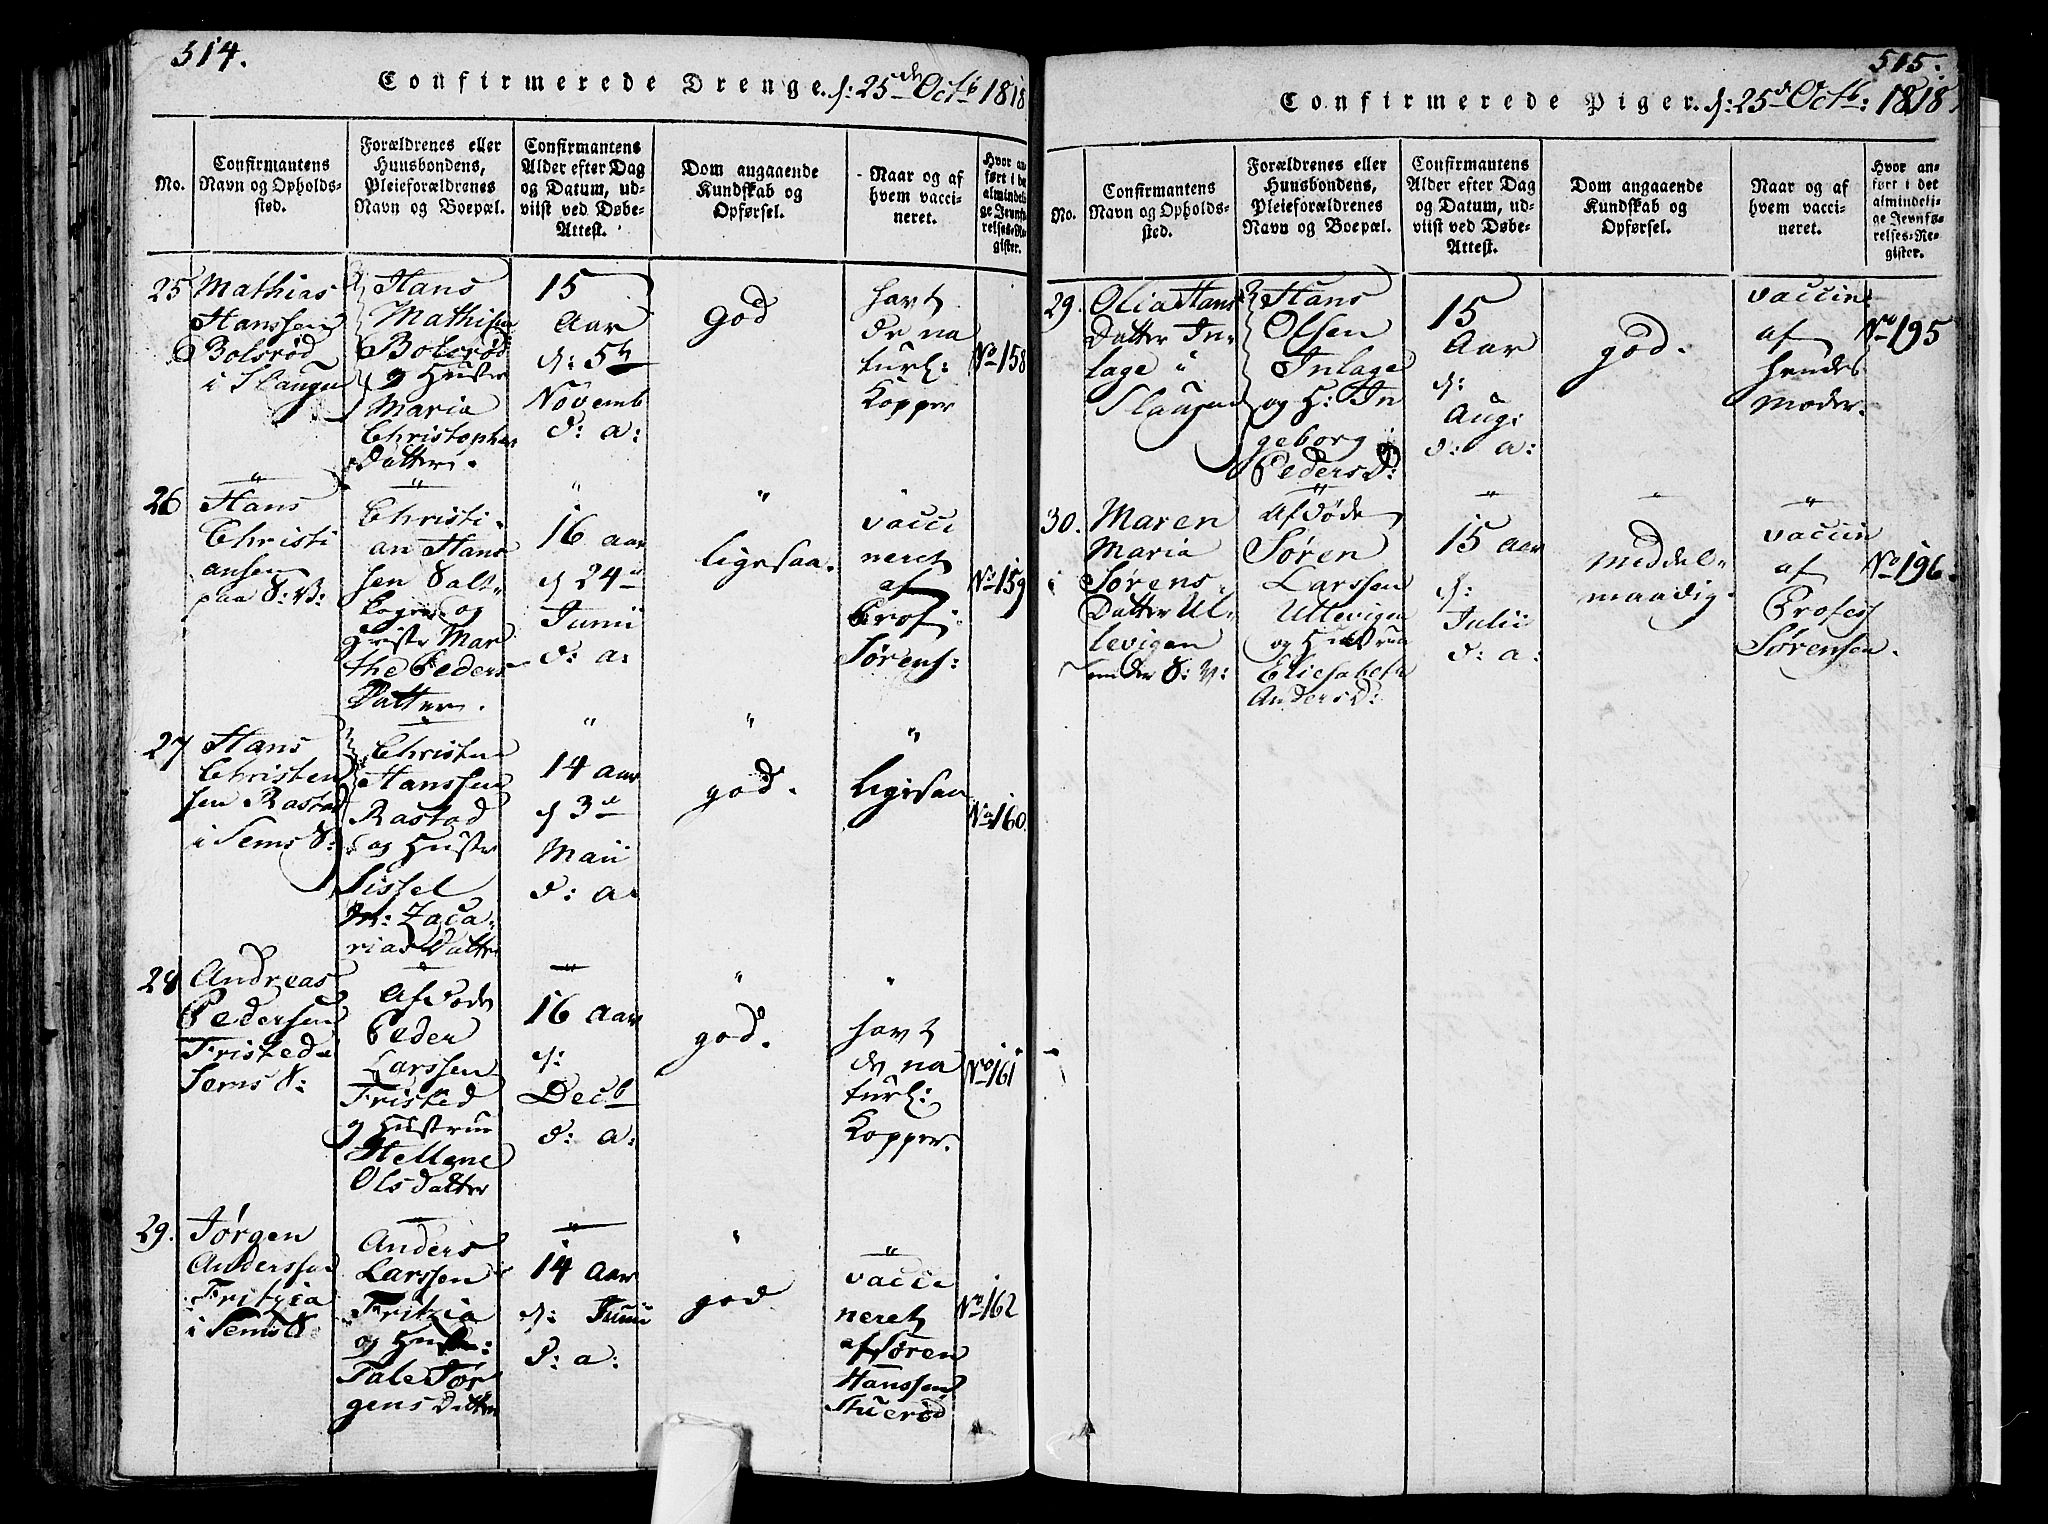 514.
Confirmerede Drenge. d: 25de Octb 1818
No.
Confirmantens
Navn og Opholds-
sted.
Forældrenes eller
Huusbondens,
Pleieforældrenes
Navn og Boepæl.
Confirmantens
Alder efter Dag
og Datum, ud-
viist ved Døbe-
Attest.
Dom angaaende
Kundskab og
Opførsel.
Naar og af
hvem vacci-
neret.
Hvor an-
ført i det
almindeli-
ge Jevnfø-
relses-Re-
gister.
25
Mathias
Hanssen
Bolsrød
i Slaugn
Hans
Mathisen
Bolsrød
og Hustr
Maria
Christophers
Datter.
15
Aar
d: 5te
Novemb
d: a:
God
havt
de na
turl:
Kopper
No 158
26
Hans
Christi
ansen
paa S: V:
Christi-
an Hans
sen Salt-
og
Hustr Mar
the Peders
Datter.
16 aar
d 24de
Junii
d: a:
ligesaa.
vacci
neret
af
Prof:
Sørens:
No 159
27
Hans
Christen
sen Rastad
i Sems S:
Christen
Hanssen
Rastad
og Hustr
Sissel
M: Zaca-
rias Datter
14 aar
d 3de
Maii
d: a.
god.
ligesaa
No 160.
28
Andreas
Pedersen
Fristed
Sems S:
Afdøde
Peder
Larssen
Fristed
og Hustrue
Hellene
Olsdatter
16 Aar
d:
Decb
d: a:
god.
havt
de na
turl:
Kopper.
No 161
29.
Jørgen
Anderssen
Fritzia
i Sems S
Anders
Larssen
Fritzia
og Hustr:
Tale Jør
gensdatter
14 Aar
d: Junii
d: a:
god
vacci
neret
af Søren
Hanssen
Stuerød
No 162
515.
Confirmerede Piger. d: 25d Octb: 1818
No.
Confirmantens
Navn og Opholds-
sted.
Forældrenes eller
Huusbondens,
Pleieforældrenes
Navn og Boepæl.
Confirmantens
Alder efter Dag
og Datum, ud-
viist ved Døbe-
Attest.
Dom angaaende
Kundskab og
Opførsel.
Naar og af
hvem vacci-
neret.
Hvor an-
ført i det
almindeli-
ge Jevnfø-
relses-Re-
gister.
29.
Olia Hans
Datter In-
lage i
Slaugn
Hans
Olsen
Inlage
og H: In
geborg
Peders D:
15
Aar
d:
Aug:
d: a:
god.
vaccin
af
hendes
Moder.
No 195
30.
Maren
Maria
Sørens
Datter Ul-
levigen
under S: V:
Afdøde
Søren
Larssen
Ullevigen
og Hustrue
Elisabeth
Anders D:
15 aar
d:
Julii
d: a:
Meddel-
maadig.
vaccin
af
Profess
Sørensen.
No 196.